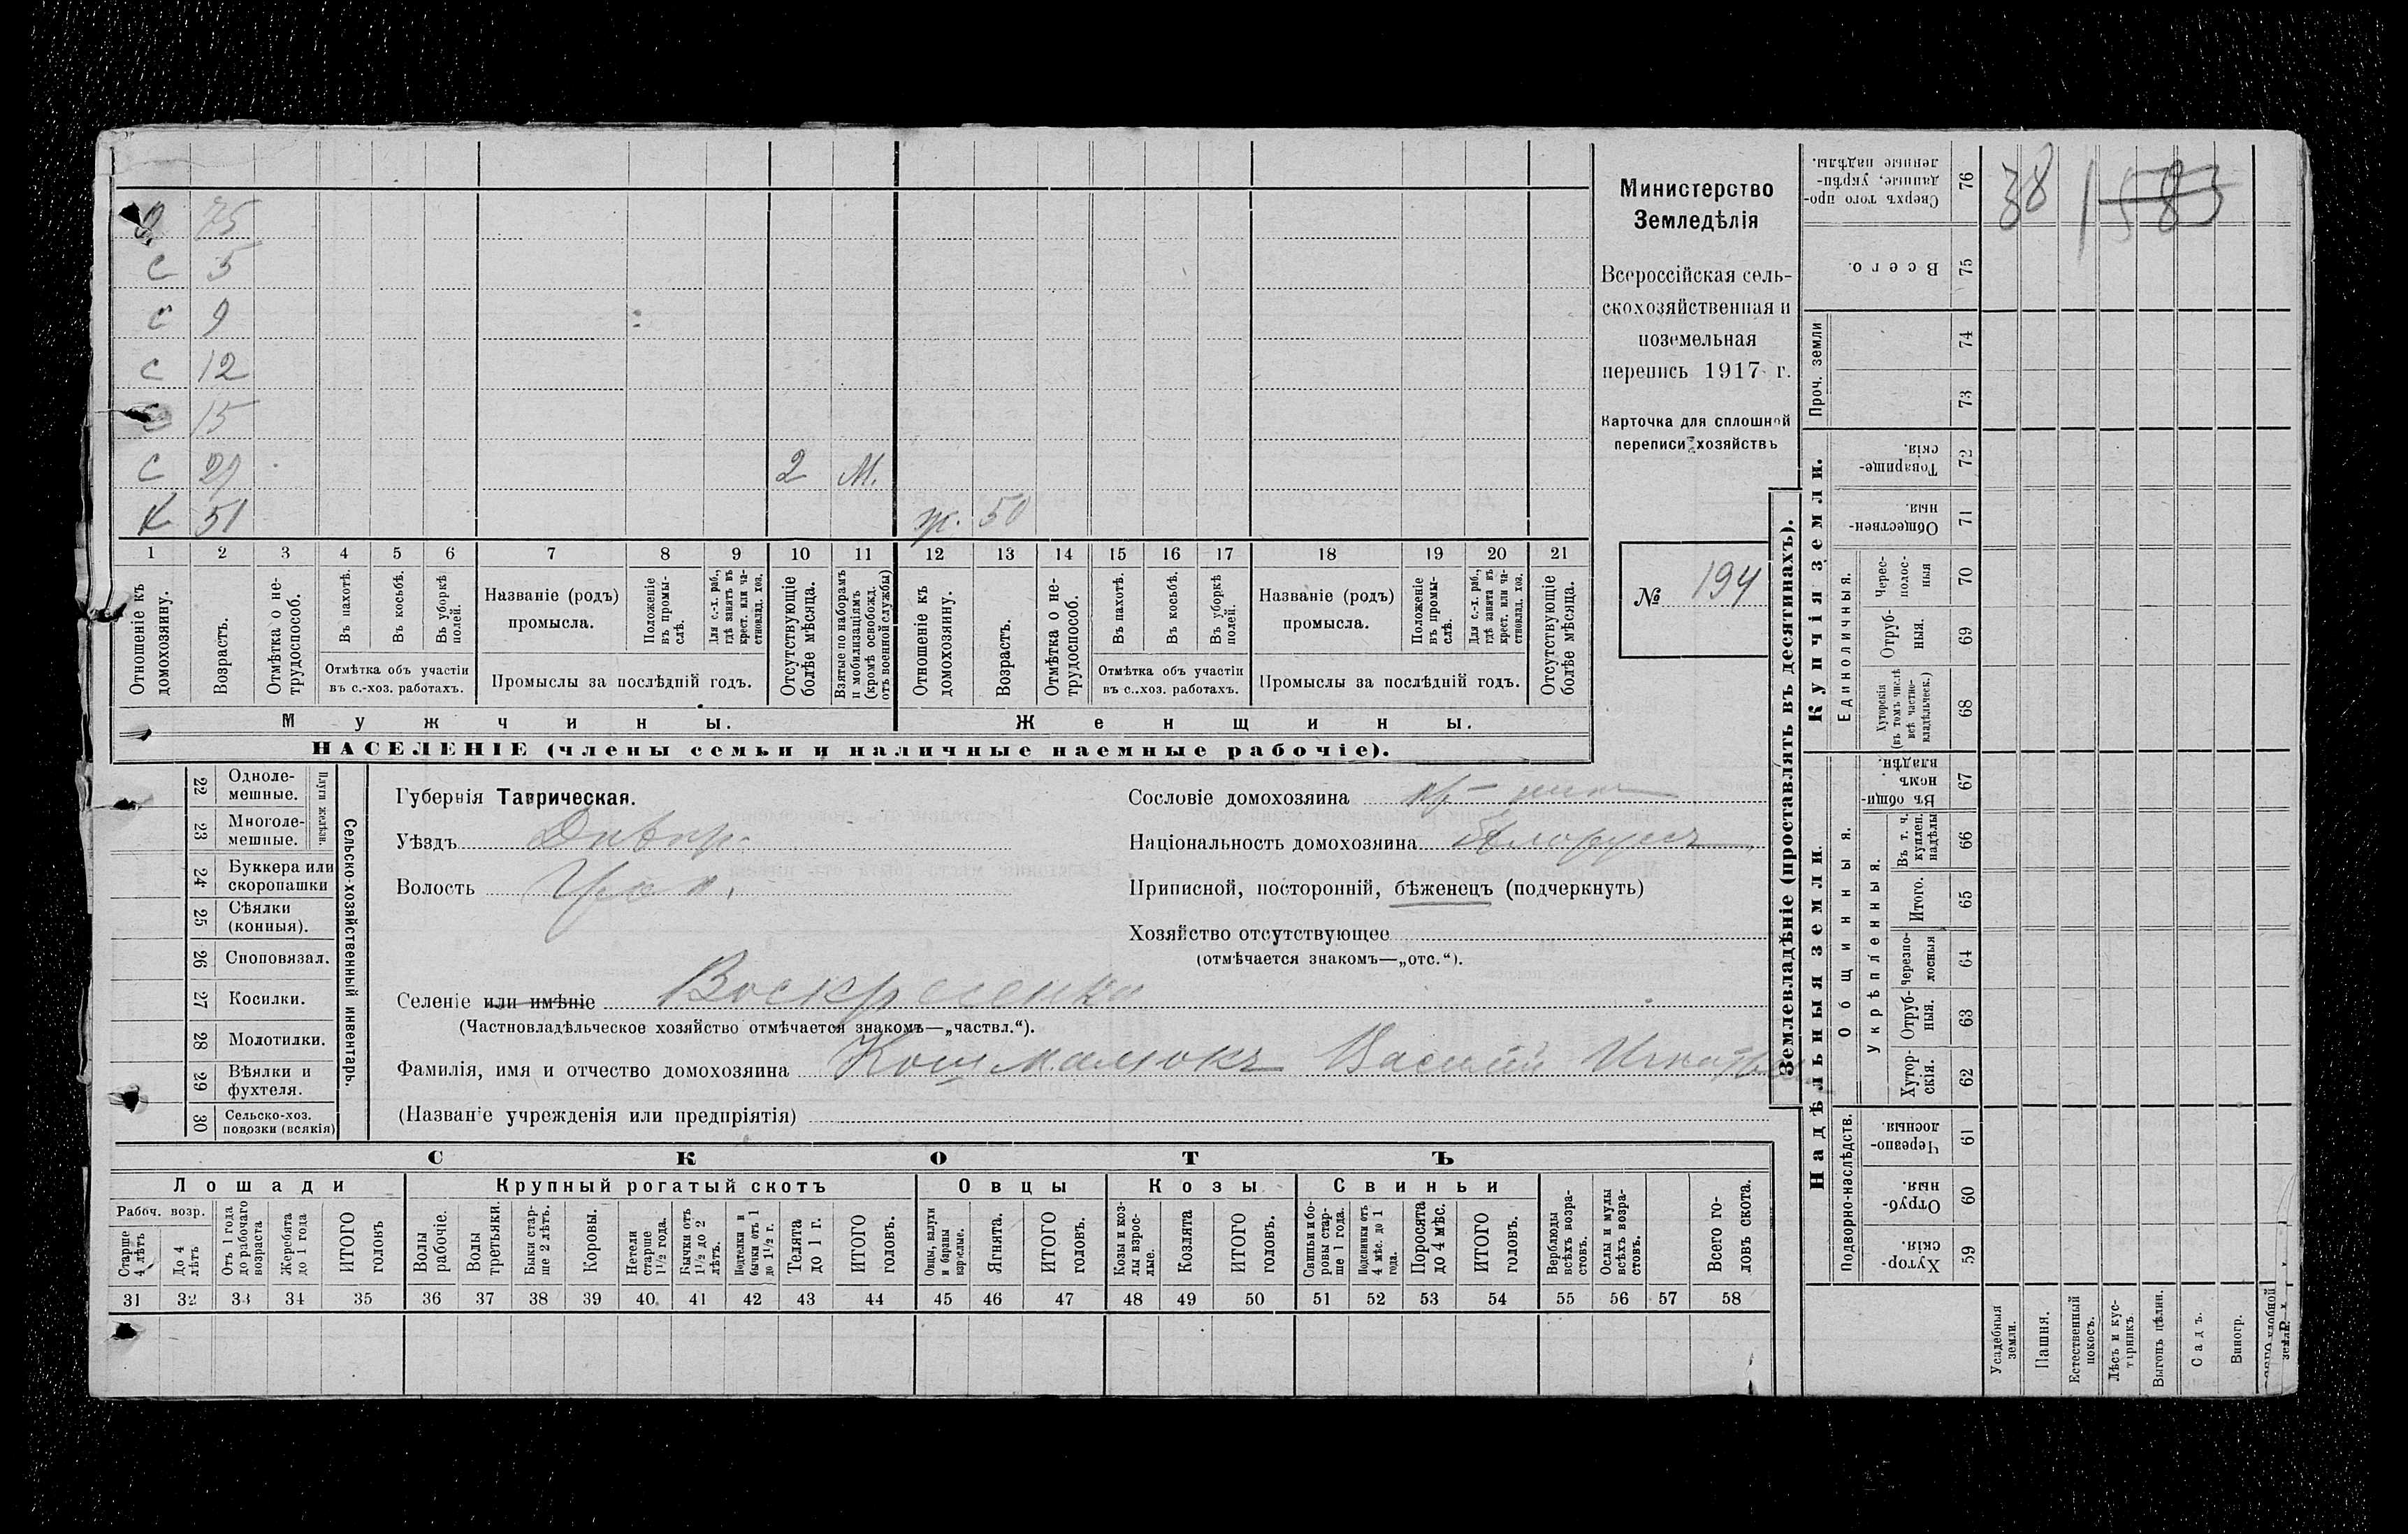 О 75
С 5
С 9
С 12
С 15
С 29 2 М.
К 51 ж. 50
1 2 3 4 5 6 7 8 9 10 11 12 13 14 15 16 17 18 19 20 21
Отношеніе къ домохозяину.
Возрастъ.
Отмѣтка о не-трудоспособ.
Въ пахотѣ.
Въ косьбѣ.
Въ уборкѣ полей.
Отмѣтка объ участіи
въ с.-хоз. работахъ.
Названіе (родъ)
промысла.
Положеніе въ промы-слѣ.
Для с.-х. раб., гдѣ занятъ въ крест. или ча-стновлад. хоз.
Промыслы за послѣдній годъ.
Отсутствующіе болѣе мѣсяца.
Взятые по наборамъ и мобилизаціямъ (кромѣ освобожд. отъ военной службы)
Отношеніе къ домохозяину.
Возрастъ.
Отмѣтка о не-трудоспособ.
Въ пахотѣ.
Въ косьбѣ.
Въ уборкѣ полей.
Отмѣтка объ участіи
въ с..хоз. работахъ.
Названіе (родъ)
промысла.
Положеніе въ промы-слѣ.
Для с.-х. раб., гдѣ занята въ крест. или ча-стновлад. хоз.
Промыслы за послѣдній годъ.
Отсутствующіе болѣе мѣсяца.
Мужчины.
Женщины.
НАСЕЛЕНІЕ (члены семьи и наличные наемные рабочіе).
Министерство
Земледѣлія
Всероссійская сель-
скохозяйственная и
поземельная
перепись 1917 г.
Карточка для сплошной
переписи хозяйствъ
№ 194
22 Одноле-мешные.
23 Многоле-мешные.
Плуги желѣзн.
24 Буккера или скоропашки
25 Сѣялки (конныя).
26 Сноповязал.
27 Косилки.
28 Молотилки.
29 Вѣялки и фухтеля.
30 Сельско-хоз. повозки (всякія)
Сельско-хозяйственный инвентарь.
Губернія Таврическая.
Уѣздъ Днѣпр.
Волость
Сословіе домохозяина кр-нинъ
Національность домохозяина бѣлоруссъ
Приписной, посторонній, бѣженецъ (подчеркнуть)
Хозяйство отсутствующее
(отмѣчается знакомъ—„отс.“).
Селеніе или имѣніе Воскресенка
(Частновладѣльческое хозяйство отмѣчается знакомъ—„частвл.“).
Фамилія, имя и отчество домохозяина Кошмалюкъ Василій Игнатьев
(Названіе учрежденія или предпріятія)
СКОТЪ
Лошади
Крупный рогатый скотъ
Овцы
Козы
Свиньи
Рабоч. возр.
Старше 4 лѣтъ
До 4 лѣтъ
Отъ 1 года до рабочаго возраста
Жеребята до 1 года
ИТОГО головъ
Волы рабочіе.
Волы третьяки.
Быки стар-ше 2 лѣтъ.
Коровы.
Нетели старше 1½ года.
Бычки отъ 1½ до 2 лѣтъ.
Подтелки и бычки отъ 1 до 1½ г.
Телята до 1 г.
ИТОГО головъ.
Овцы, валухи и бараны взрослые.
Ягнята.
ИТОГО головъ.
Козы и коз-лы взрос-лые.
Козлята
ИТОГО головъ.
Свиньи и бо-ровы стар-ше 1 года.
Подсвинки отъ 4 мѣс. до 1 года.
Поросята до 4 мѣс.
ИТОГО головъ.
Верблюды всѣхъ возра-стовъ.
Ослы и мулы всѣхъ возра-стовъ.
Всего го-ловъ скота.
31 32 33 34 35 36 37 38 39 40 41 42 43 44 45 46 47 48 49 50 51 52 53 54 55 56 57 58
Землевладѣніе (проставлять въ десятинахъ).
Купчія земли.
Надѣльныя земли.
Сверхъ того про-данные, укрѣп-ленные надѣлы. 76
38 1583
Всего. 75
Проч. земли 74 73
Товарище-скія. 72
Обществен-ныя. 71
Единоличныя.
Черес-полос-ныя 70
Отруб-ныя. 69
Хуторскія (въ томъ числѣ всѣ частно-владѣльческ.) 68
Общинныя.
Въ общин-номъ владѣн. 67
Укрѣпленныя.
Въ т. ч. куплен. надѣлы 66
Итого. 65
Черезпо-лосныя 64
Отруб-ныя. 63
Хутор-скія. 62
Подворно-наслѣдств.
Черезпо-лосныя. 61
Отруб-ныя. 60
Хутор-скія. 59
Усадебныя земли.
Пашня.
Естественный покосъ.
Лѣсъ и кус-тарникъ.
Выгонъ цѣлин.
Садъ.
Виногр.